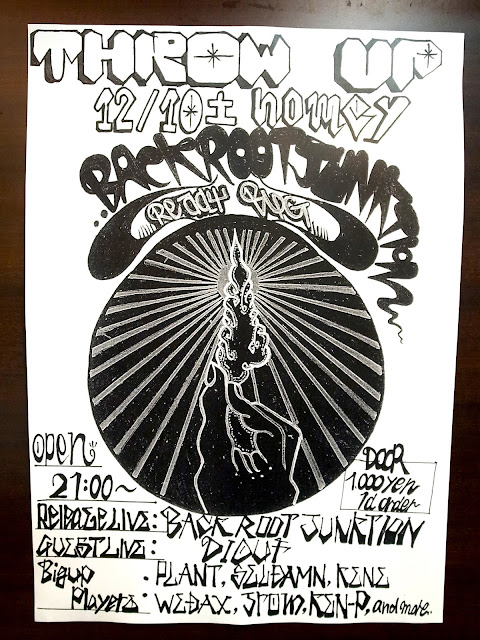 THROW UP
12/10 土 homey
BACK ROOT JUNKTION
Ready
OPEN
21:00～
DOOR
1.000 yen
1d order
RELEASE LIVE: BACK ROOT JUNKTION
GUEST LIVE: DIGUT
Bigup Players: PLANT, GELDAMN, KENE
WEDAX, JPOM, KEN-P, and more.